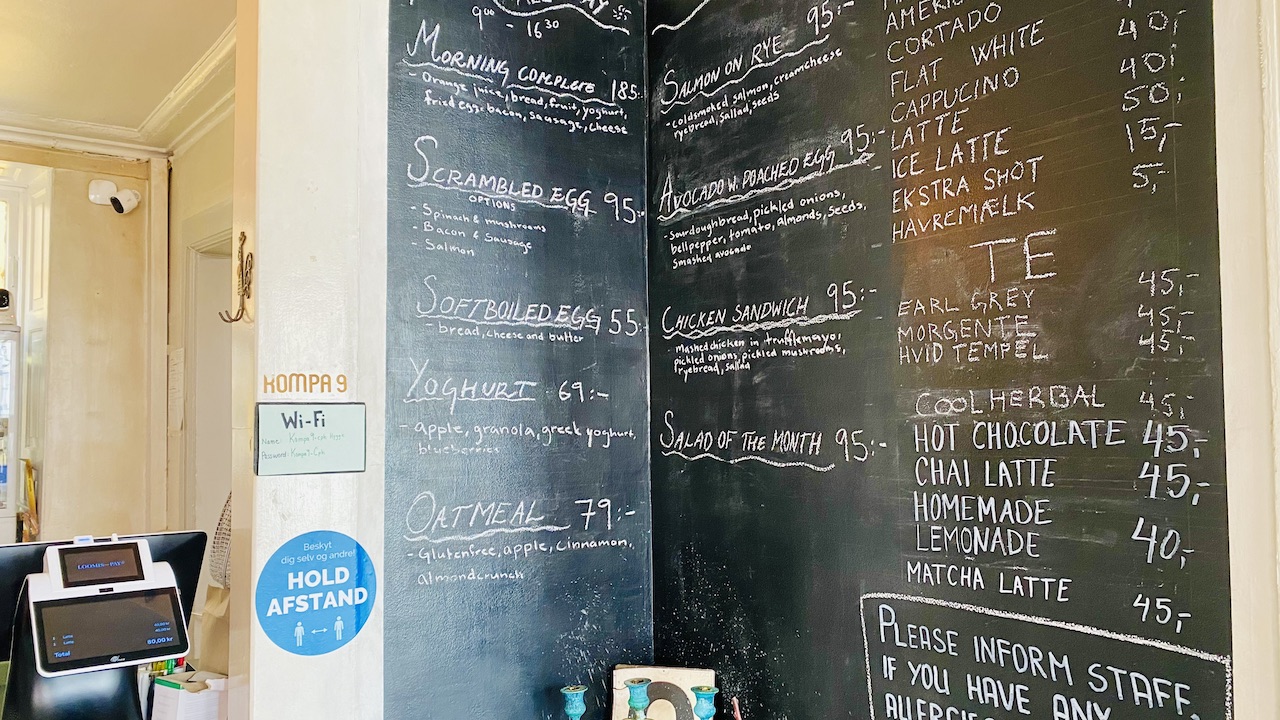 9⁰⁰ - 16³⁰
MORNING COMPLETE 185:-
- Orange juice, bread, fruit, yoghurt,
fried egg, bacon, sausage, cheese
SCRAMBLED EGG 95:-
OPTIONS
- Spinach & mushrooms
- Bacon & Sausage
- Salmon
SOFTBOILED EGG 55:-
- bread, cheese and butter
YOGHURT 69:-
- apple, granola, greek yoghurt,
blueberries
OATMEAL 79:-
- Glutenfree, apple, cinnamon,
almondcrunch
SALMON ON RYE 95:-
- coldsmoked salmon, creamcheese
ryebread, sallad, seeds
AVOCADO W. POACHED EGG 95:-
- Sourdoughbread, pickled onions,
bellpepper, tomato, almonds, seeds,
smashed avocado
CHICKEN SANDWICH 95:-
- Mashed chicken in trufflemayo,
pickled onions, pickled mushrooms,
ryebread, sallad
SALAD OF THE MONTH 95:-
CORTADO
FLAT WHITE 40,-
CAPPUCINO 40,-
LATTE
ICE LATTE 50,-
EKSTRA SHOT 15,-
HAVREMÆLK 5,-
TE
EARL GREY 45,-
MORGENTE 45,-
HVID TEMPEL 45,-
COOL HERBAL 45,-
HOT CHOCOLATE 45,-
CHAI LATTE 45,-
HOMEMADE
LEMONADE 40,-
MATCHA LATTE 45,-
PLEASE INFORM STAFF,
IF YOU HAVE ANY
KOMPA 9
Wi-Fi
Name:
Password: Kompa9-Cph
Beskyt
dig selv og andre!
HOLD
AFSTAND
LOOMIS PAY
Total 80,00 kr